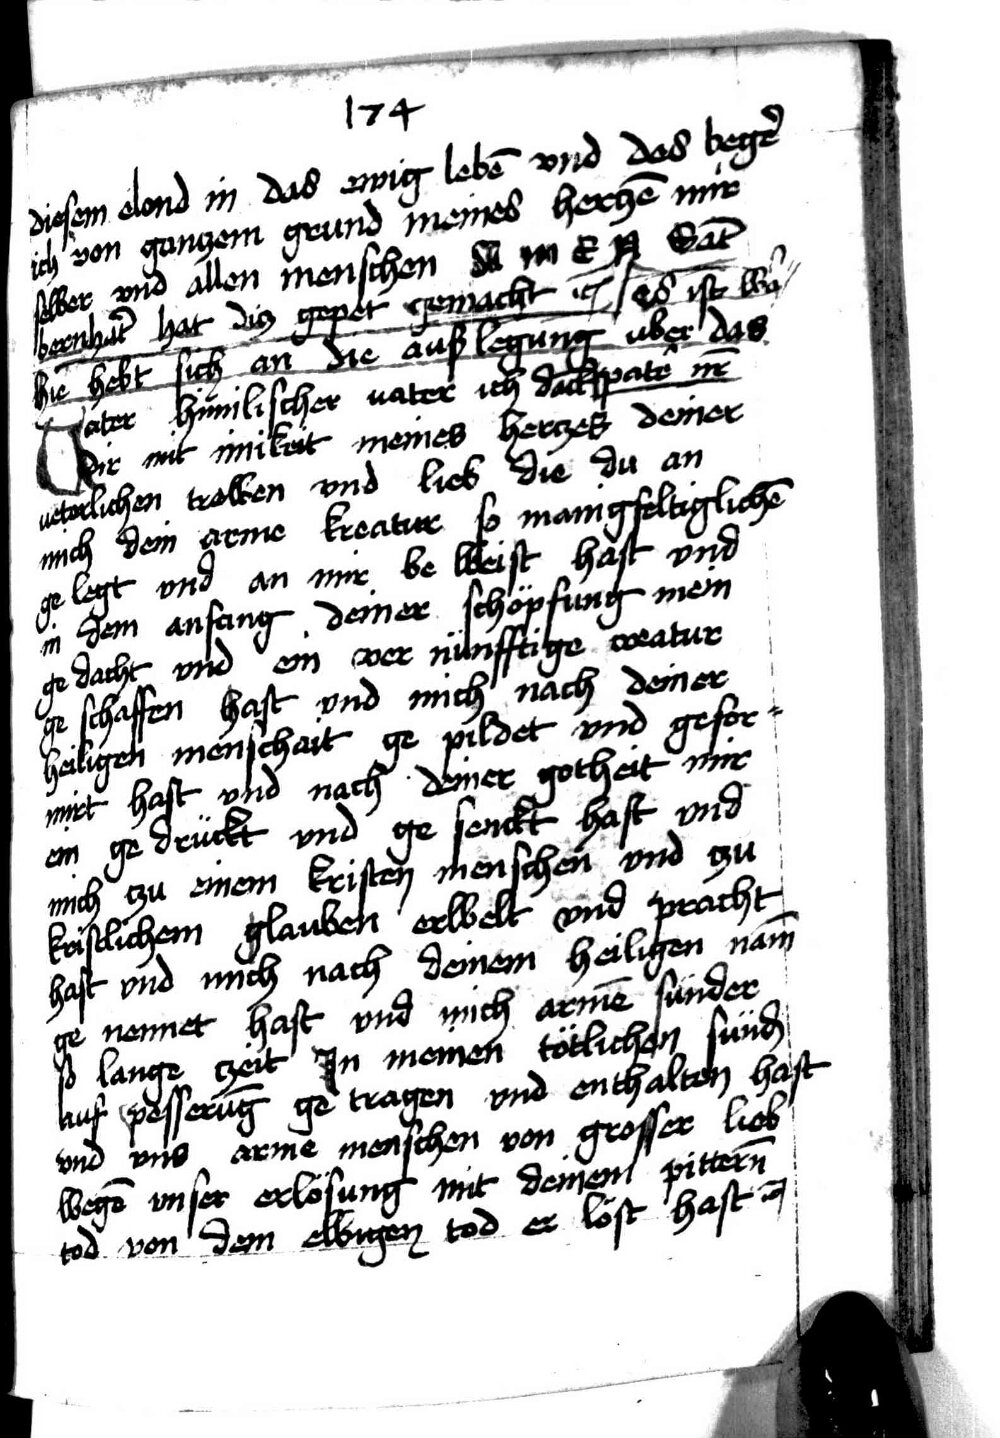 174
diesem elond in das ewig lebē vnd das beger̄
ich von gantzem grund meines hertzē mir
selber vnd allen menschen A m E N Sāt
bernhar̄t hat dis gepet gemacht es ist
hie hebt sich an die auß legung uber das
Vater himilischer uater ich danck pater nr̄
dir mit inikeit meines hertzes deiner
ueterlichen trewen vnd lieb die du an
mich dein arme kreatur so manigfeltiglichē
ge legt vnd an mir be weist hast vnd
in dem anfang deiner schöpfung mein
ge dacht vnd ein ver nünfftige creatur
ge schaffen hast vnd mich nach deiner
heiligen menschait ge pildet vnd gefor-
mirt hast vnd nach deiner gotheit mir
ein ge drückt vnd ge senckt hast vnd
mich tzu einem kristen menschen vnd tzu
kristlichem glauben erwelt vnd pracht
hast vnd mich nach deinem heiligen nam̄
ge nennet hast vnd mich armē sünder
so lange tzeit In meinen tötlichen sünd
auf pesserūg ge tragen vnd enthalten hast
vnd vns arme menschen von grosser lieb
wegē vnser erlösung mit deinem pittern̄
tod von dem ewigen tod er löst hast